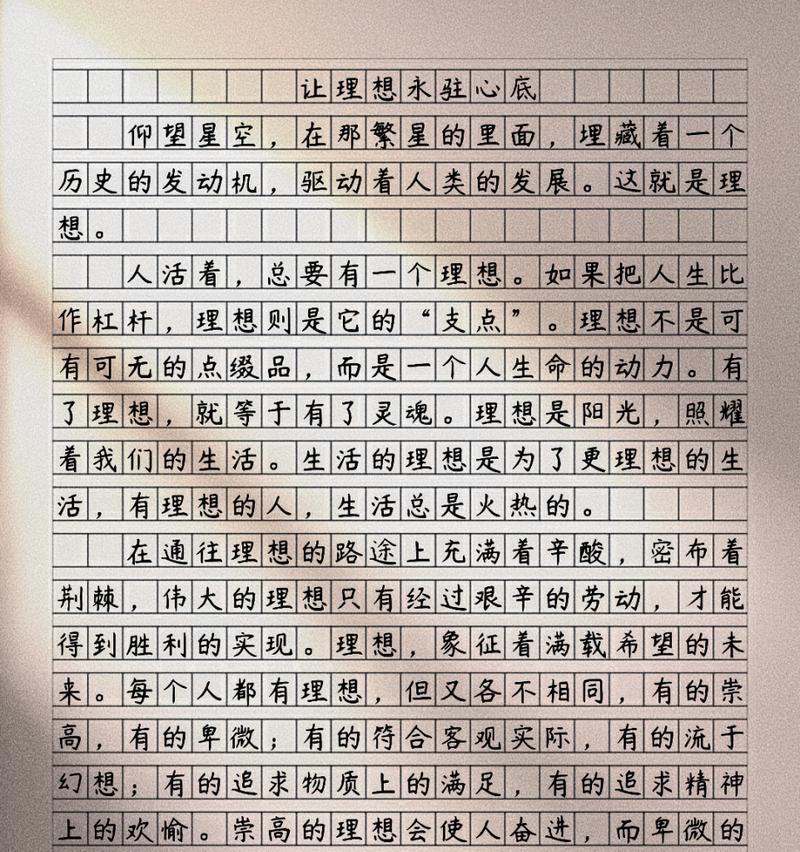 让理想永驻心底
仰望星空，在那繁星的里面，埋藏着一个
历史的发动机，驱动着人类的发展。这就是理
想。
人活着，总要有一个理想。如果把人生比
作杠杆，理想则是它的“支点”。理想不是可
有可无的点缀品，而是一个人生命的动力。有
了理想，就等于有了灵魂。理想是阳光，照耀
着我们的生活。生活的理想是为了更理想的生
活，有理想的人，生活总是火热的。
在通往理想的路途上充满着辛酸，密布着
荆棘，伟大的理想只有经过艰辛的劳动，才能
得到胜利的实现。理想，象征着满载希望的未
来。每个人都有理想，但又各不相同，有的崇
高，有的卑微；有的符合客观实际，有的流于
幻想；有的追求物质上的满足，有的追求精神
上的欢愉。崇高的理想会使人奋进，而卑微的